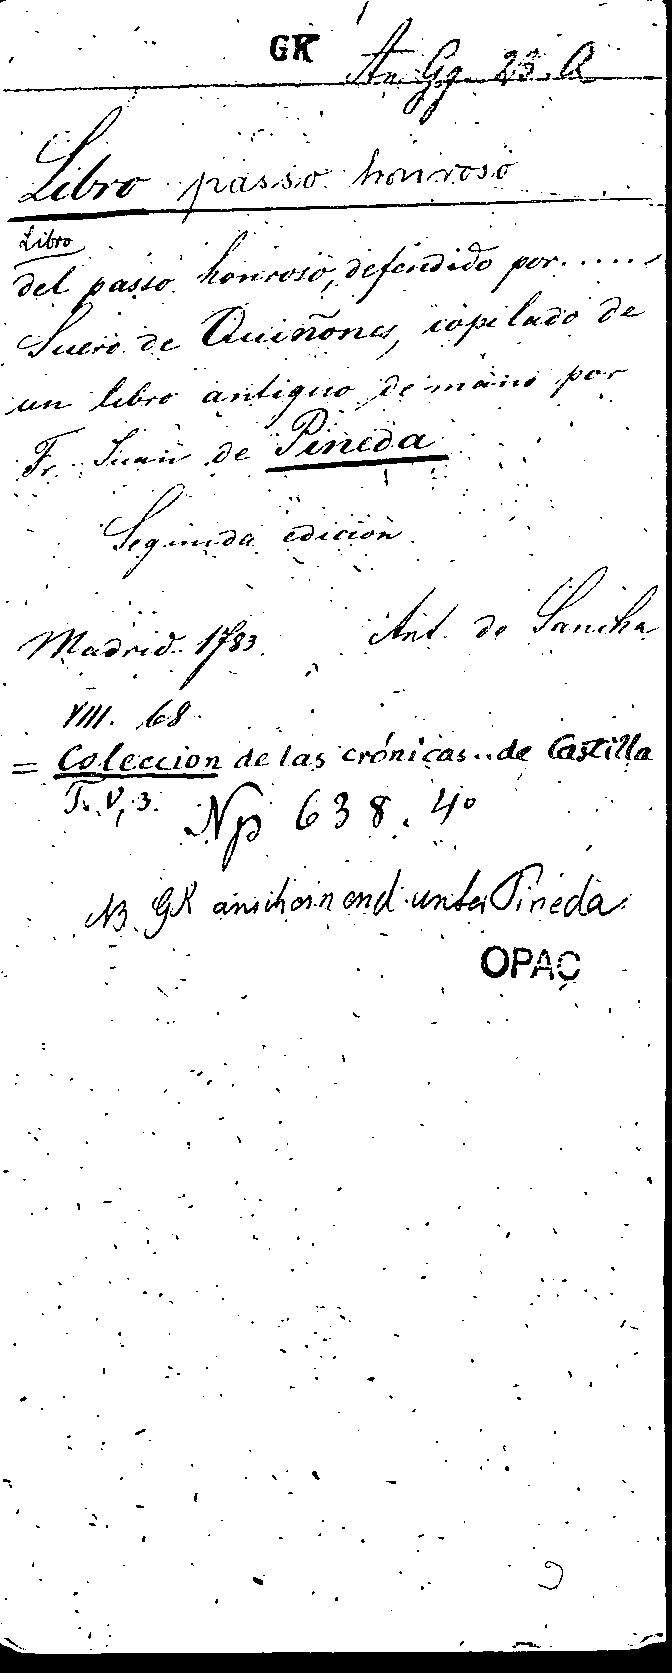 GK An Gg. 23. Q
Libro passo honroso
Libro
del passo honroso, defendido por......
Suero de Quiñones, copilado de
un libro antiguo de mano por
Fr. Juan de Pineda
Segunda edicion
Madrid 1783. Ant. de Sancha
VIII. 68.
= Coleccion de las crónicas...de Castilla
T. V, 3. Np 638. 4º
NB. GK anscheinend unter Pineda
OPAC